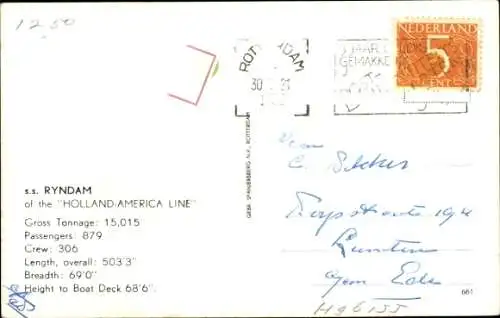 1250
ROTTERDAM
30
NEDERLAND
5
CENT
GEMAKKE
s.s. RYNDAM
of the "HOLLAND-AMERICA LINE"
Gross Tonnage: 15,015
Passengers: 879
Crew: 306
Length, overall: 503'3"
Breadth: 69'0"
Height to Boat Deck 68'6".
GEBR. SPANJERSBERG N.V., ROTTERDAM
C.
Dorpsstraat 19
Lunteren
gem Ede
661
Hgb155